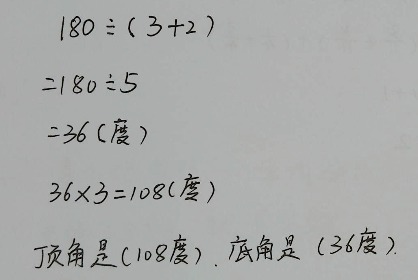 180÷(3+2)
=180÷5
=36(度)
36×3=108(度)
顶角是(108度).底角是(36度).